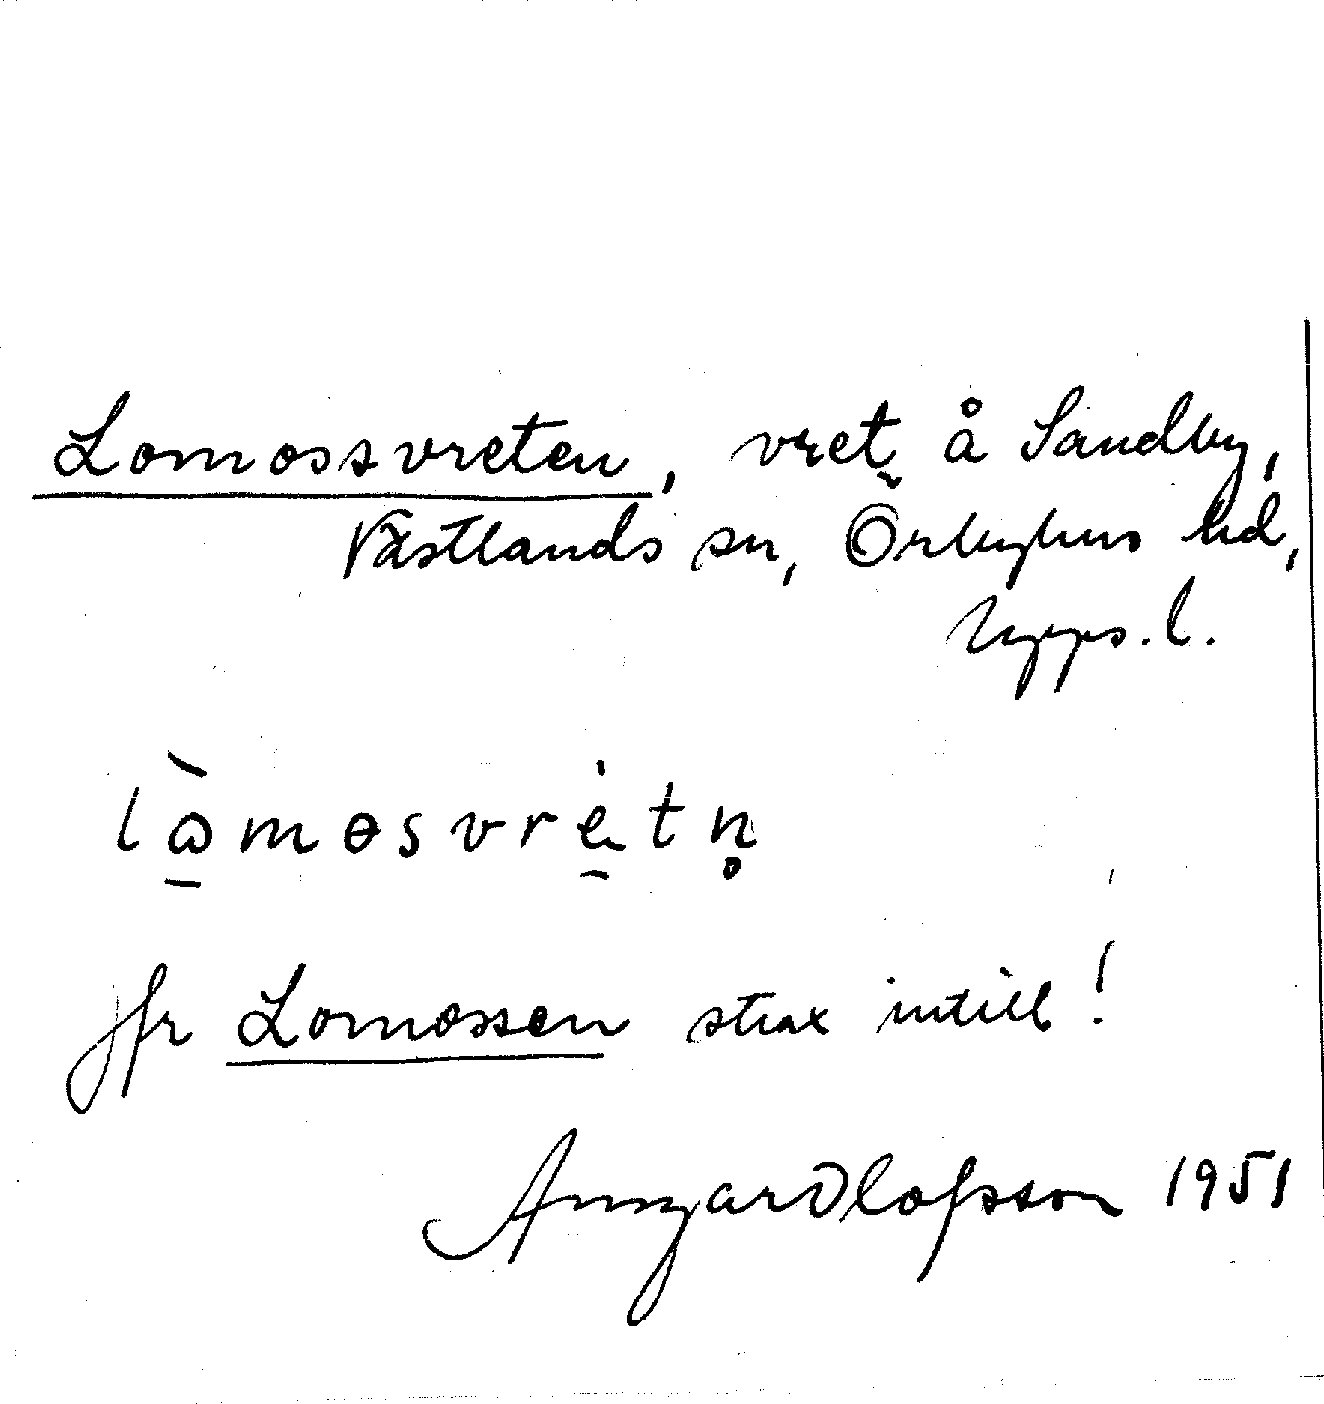 Lomossvreten, vret å Sandby,
Västlands sn, Örbyhus hd,
Upps. l.
lòmosvrètn̥
Jfr Lomossen strax intill!
Ansgar Olofsson 1951